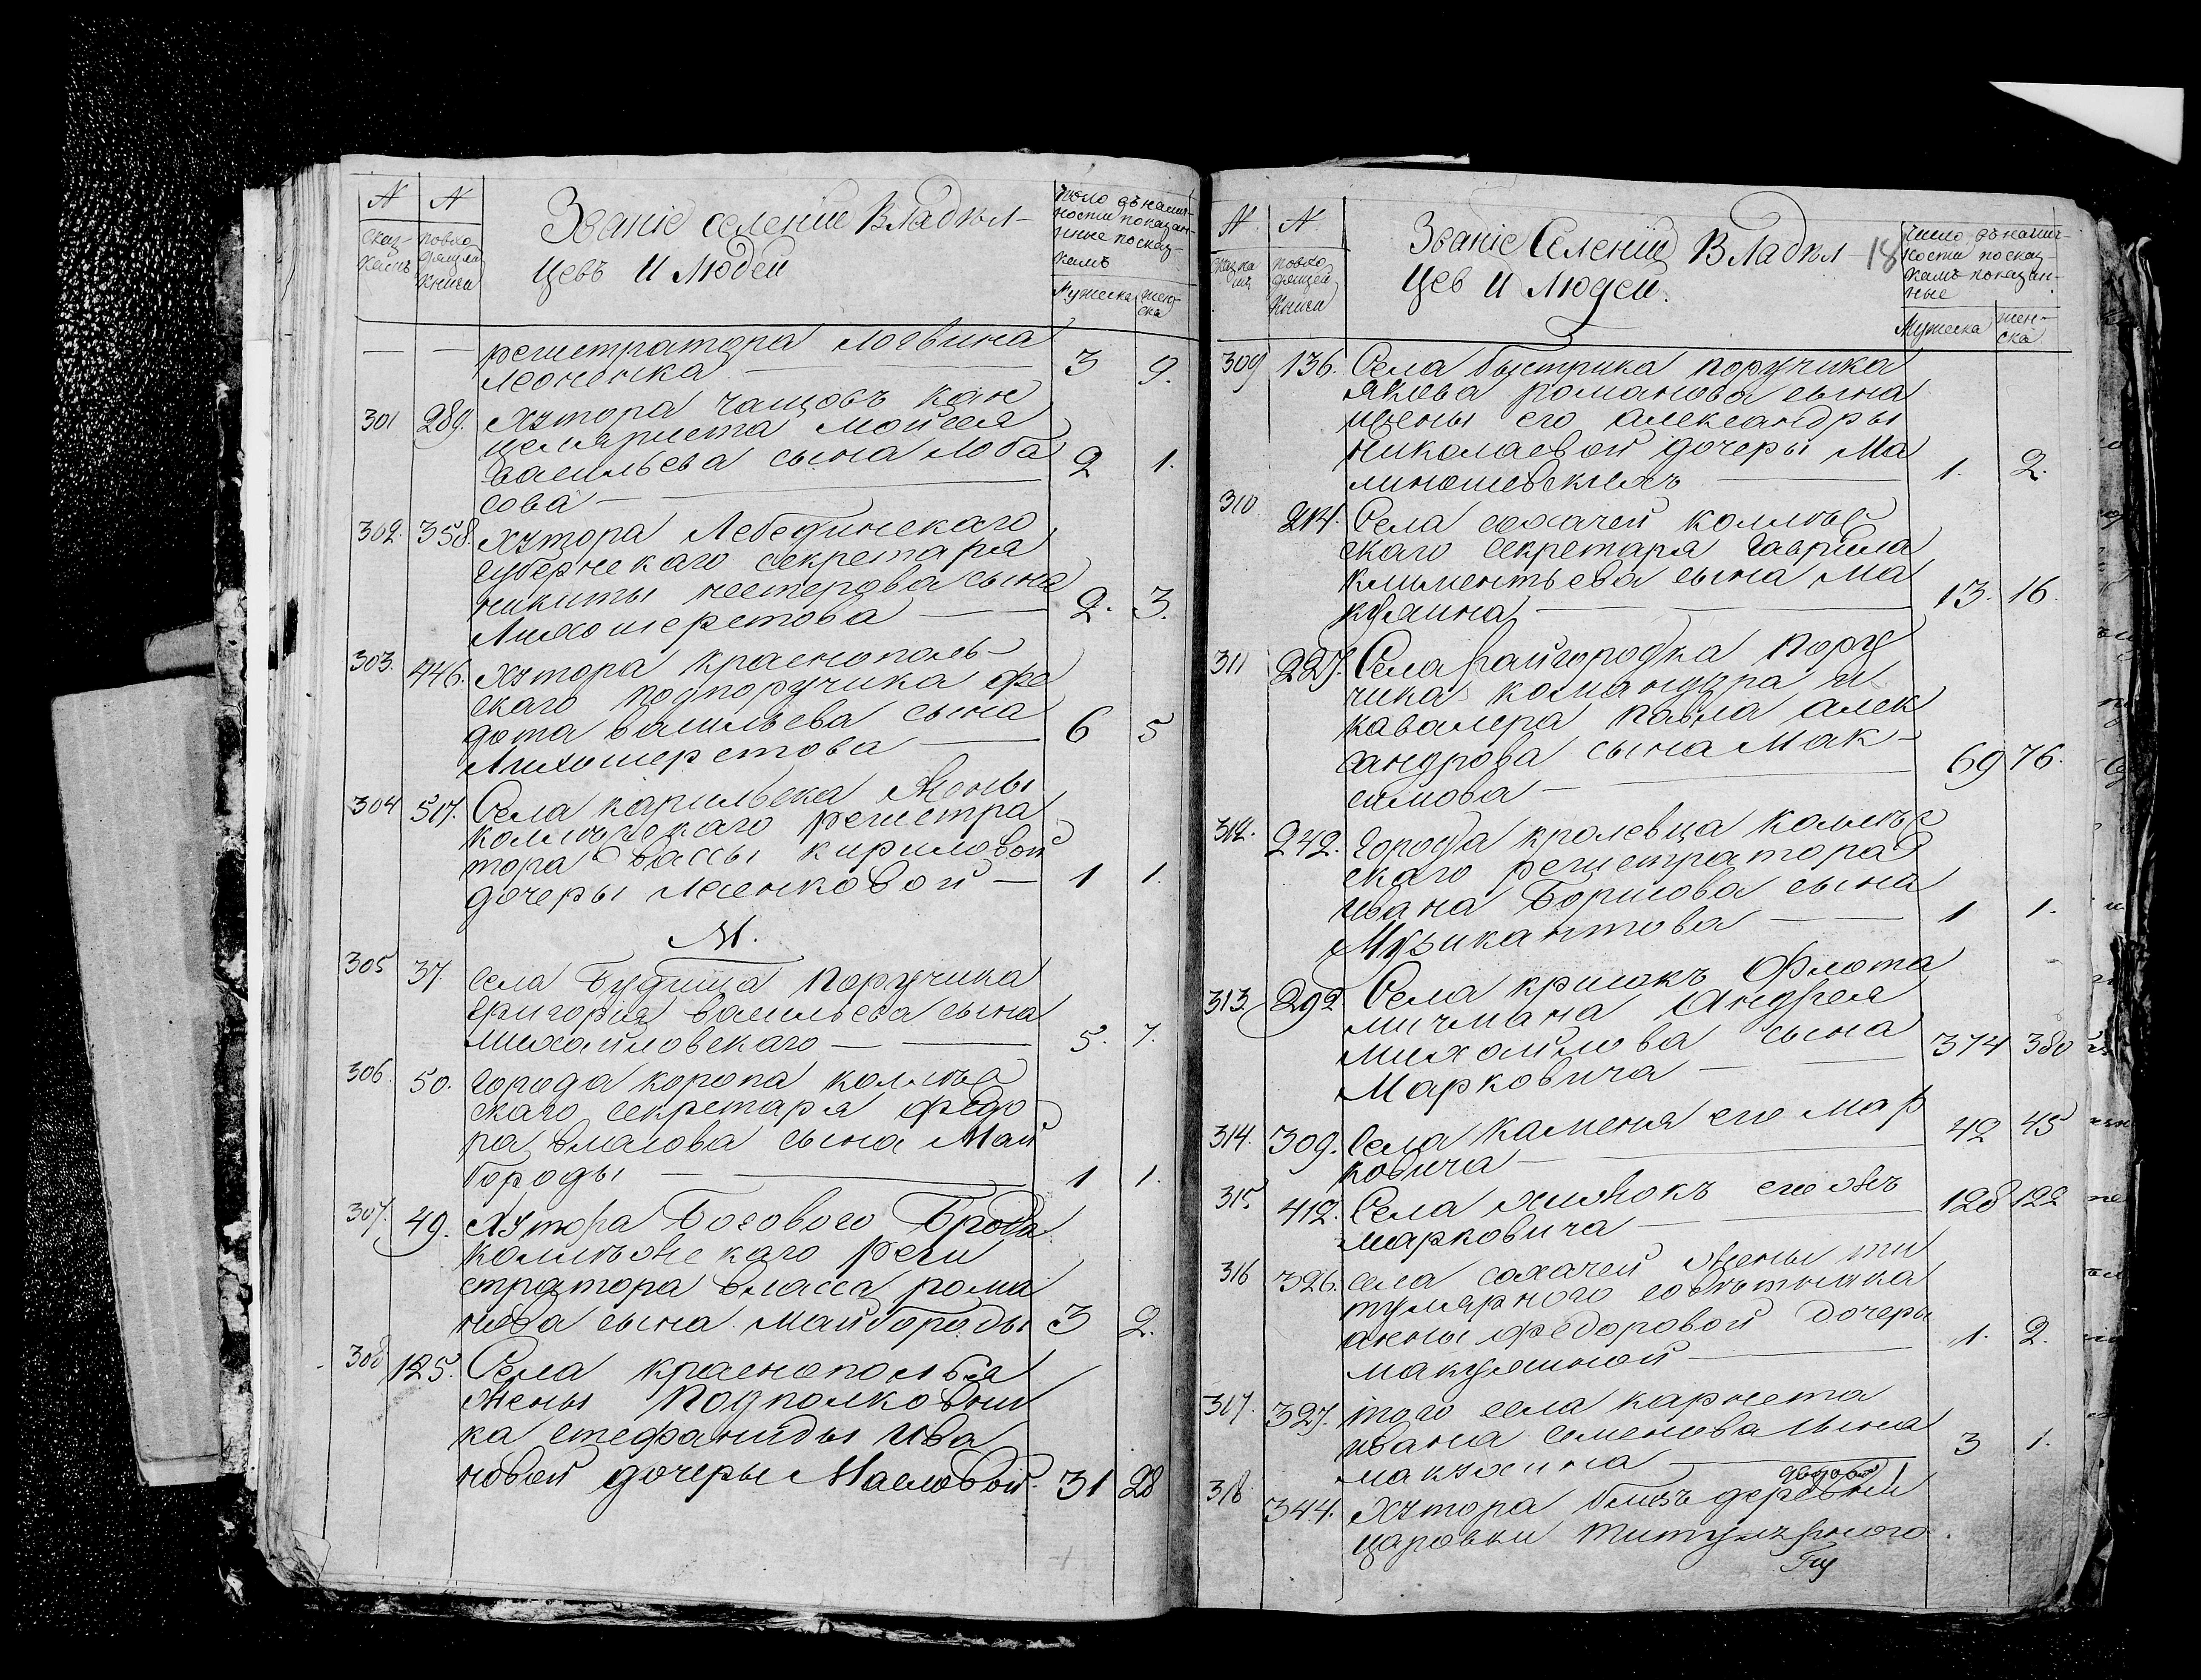 N N Званіе селеніи владѣл-
цевъ и людей
сказ-
камъ
повхо
дящей
книги
Число дѣ налич-
ности показан-
ные посказ-
камъ
Мужеска жен-
ска
— — регистратора Логвина
Леоненка — 3 9.
301 289. Хутора чащовъ кан
целяриста Мойсея
Васильева сына Лоба
сова — 2 1.
302. 358. Хутора Лебединскаго
губернскаго секретаря
никиты нестерова сына
Лихошерстова — 2. 3.
303. 446. Хутора краснополь-
скаго подпоручика фе
дота васильева сына
Лихошерстова — 6 5
304 517. Села карильска жены
коллежскаго регистра
тора Вассы кириловой
дочеры Леенковой — 1 1.
М.
305 37. Села Будища поручика
Григорія васильева сына
михайловскаго — 5. 7.
306. 50. Города коропа коллѣж
скаго секретаря Федо
ра власова сына Май
бороды — 1 1.
307. 49. Хутора Босового Брода
коллѣжскаго реги
стратора власса рома
нова сына майбороды 3 2.
308 125. Села краснополья
жены подполковни
ка стефаниды Ива
новой дочеры Масловой. 31 28
N. N. Званіе Селеній Владѣл- 18
цев и людей.
сказка
мъ
повхо
дящей
книги
Число дѣ налич-
ности посказ-
камъ показан-
ные
Мужеска жен-
ска
309 136. Села быстрика поручика
якова романова сына
ижены его александры
николаевой дочеры Ма
линошевскихъ — 1. 2.
310 214. Села сохачей коллѣж
скаго секретаря гаврила
климентьева сына Ма
кухина — 13. 16.
311 227. Села райгородка пору
чика командира и
кавалера павла алек
сандрова сына Мак-
симова — 69 76.
312. 242. Города кролевца коллѣж
скаго регистратора
ивана Борисова сына
Музикантова — 1 1.
313. 292 Села кришокъ Флота
мичмана Андрея
михайлова сына
Марковича — 374 380
314. 309. Села каменя его мар
ковича — 42 45
315 412. Села хижокъ его жъ
марковича — 128 122
316 326. Села сохачей жены ти
тулярного совѣтника
анны федоровой дочеры
макухиной — 1. 2.
317. 327. того села карнета
ивана семенова сына
макухина — 3 1.
318. 344. Хутора близъ деревни
царовки титулярного